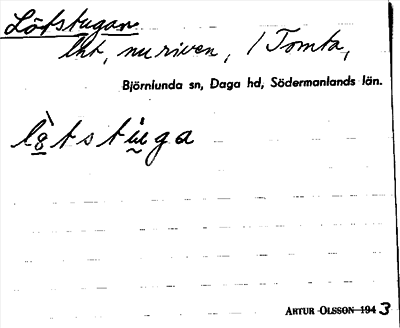 Lötstugan
lht, nu riven, / Tomta,
Björnlunda sn, Daga hd, Södermanlands län.
lö̀tstu̇ga
ARTUR OLSSON 1943